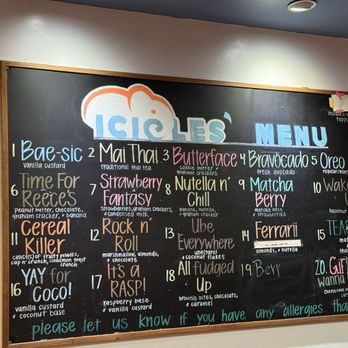 ICICLES' MENU
1 Bae-sic
vanilla custard
2 Mai Thai
traditional thai tea
3 Butterface
cookie butter,
graham crackers
4 Bravocado
fresh avocado
5 Oreo
6 Time For Reece's
Peanut butter, chocolate,
graham cracker, + banana
7 Strawberry Fantasy
strawberries, graham crackers,
+ condensed milk
8 Nutella n' Chill
banana, nutella,
+ graham cracker
9 Matcha Berry
matcha base
+ strawberries
10
11 Cereal Killer
choice(s) of fruity pebbles,
cap n' crunch, cinnamon toast
crunch
12 Rock n' Roll
marshmallow, almonds,
+ chocolate
13 Ube Everywhere
+ coconut flakes
14 Ferrarii
almonds, + nutella
15
16 YAY for Coco!
+ vanilla custard
17 It's a RASP!
raspberry base
+ vanilla custard
18 All fudged Up
brownie bites, chocolate,
+ caramel
19
20
please let us know if you have any allergies